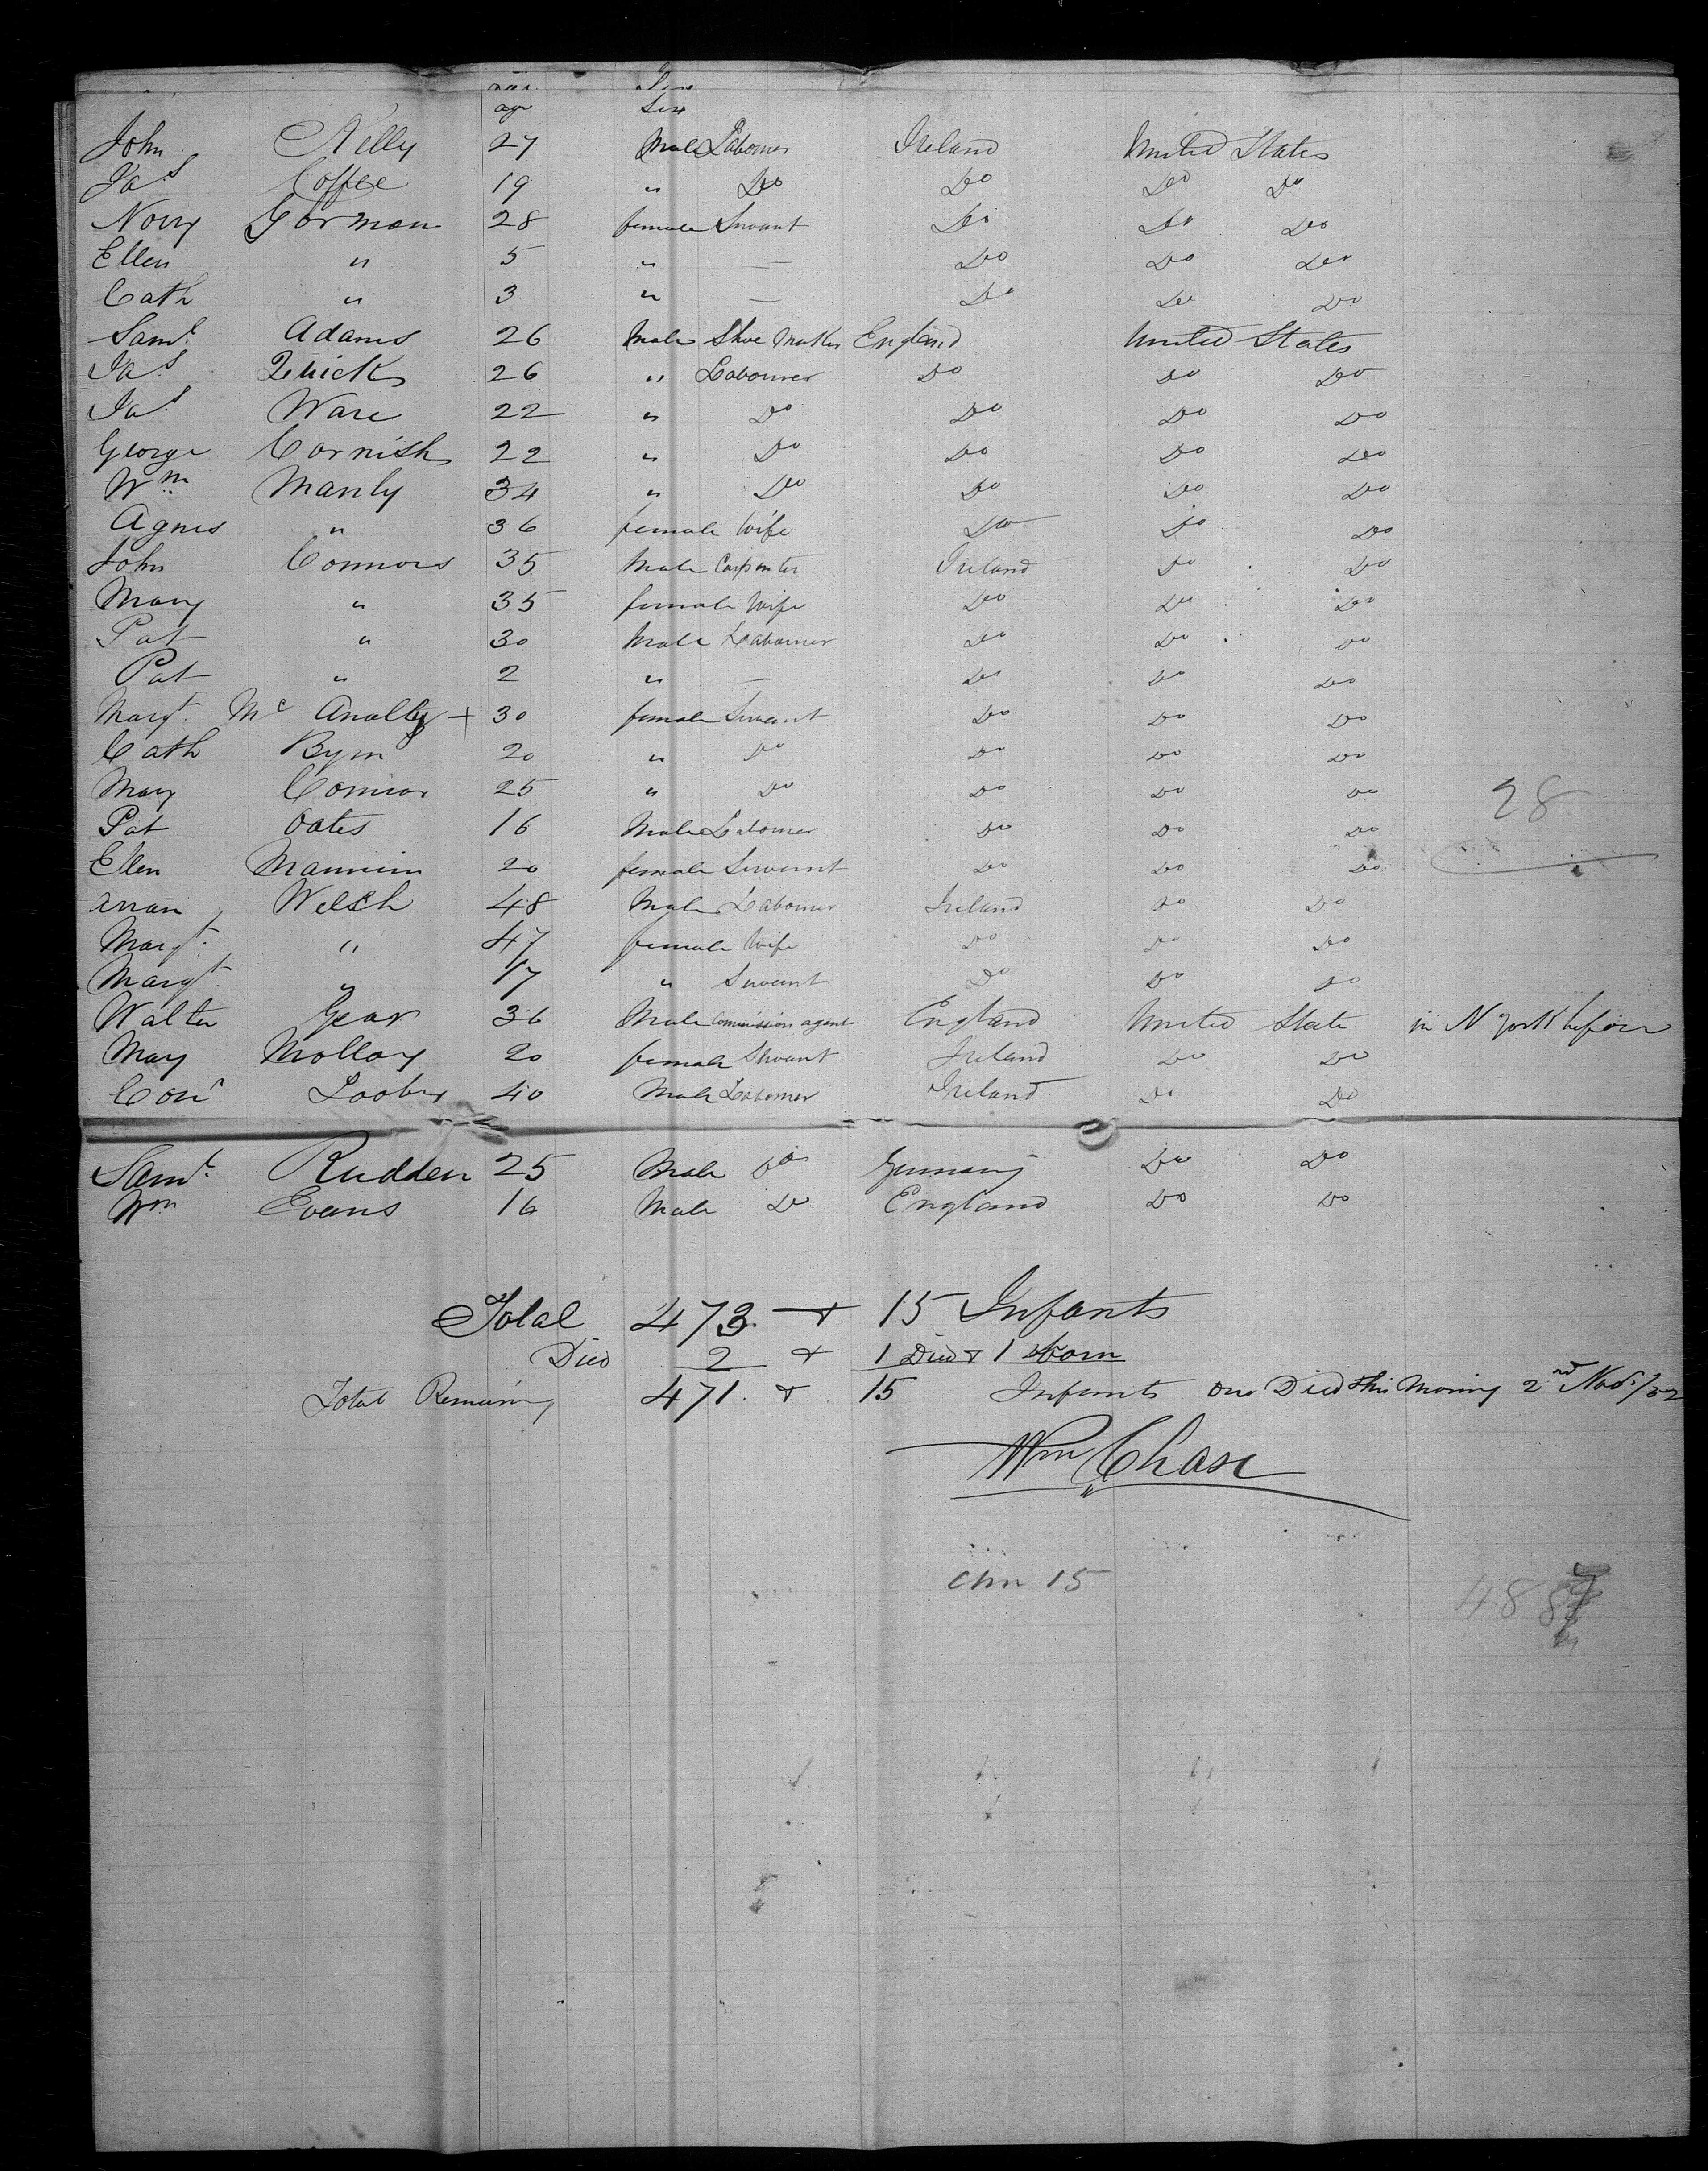 age Sex
John Kelly 27 Male Labourer Ireland United States
Jas Coffee 19 " Do Do Do Do
Nory Gorman 28 female Servant Do Do Do
Ellen " 5 " — Do Do Do
Cath " 3 " — Do Do Do
Saml. Adams 26 Male Shoe Maker England United States
Jas. Quick 26 " Labourer Do Do Do
Jas. Ware 22 " Do Do Do Do
George Cornish 22 " Do Do Do Do
Wm Manly 34 " Do Do Do Do
Agnes " 36 female Wife Do Do Do
John Connors 35 Male Carpenter Ireland Do Do
Mary " 35 female Wife Do Do Do
Pat " 30 Male Labourer Do Do Do
Pat " 2 " — Do Do Do
Margt. Mc Anally + 30 female Servant Do Do Do
Cath Byrn 20 " Do Do Do Do
Mary Connor 25 " Do Do Do Do 28
Pat Oates 16 Male Labourer Do Do Do
Ellen Mannin 20 female Servant Do Do Do
Welsh 48 Male Labourer Ireland Do Do
Margt. " 47 female Wife Do Do Do
Margt. " 17 " Servant Do Do Do
Walter Gear 36 Male Commission agent England United State in N York before
May Molloy 20 female Servant Ireland Do Do
Con Looby 40 Male Labourer Ireland Do Do
Saml. Rudden 25 Male Do Germany Do Do
Wm Evans 16 Male Do England Do Do
Total 473 + 15 Infants
Died 2 + 1 Died + 1 born
Total Remaining 471 + 15 Infants one Died this Morning 2nd Nov/52
Wm Chase
Chn 15
488